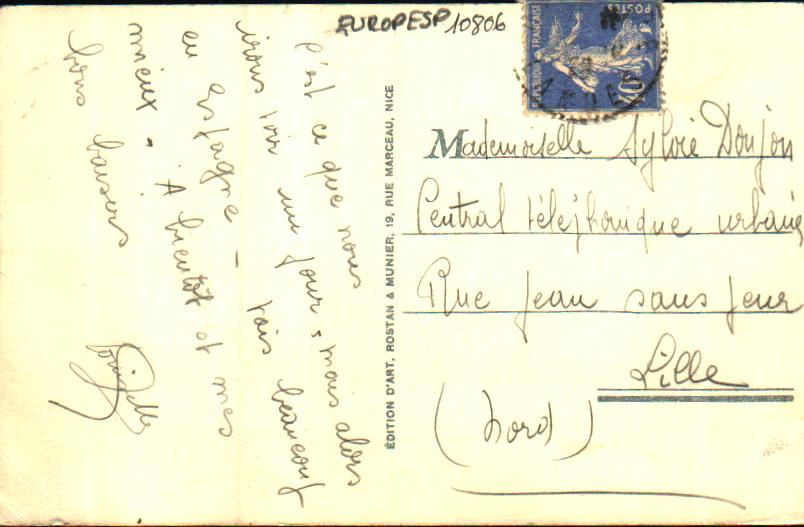 EUROPESP 10806
REPUBLIQUE FRANÇAISE
POSTES
40c
C'est ce que nous
irons voir un jour, mais alors
en Espagne - vais beaucoup
mieux. A bientôt et mes
bons baisers
ÉDITION D'ART, ROSTAN & MUNIER, 19, RUE MARCEAU, NICE
Mademoiselle Sylvie Donjon
Central téléphonique urbain
Rue Jean sans peur
Lille
(Nord)